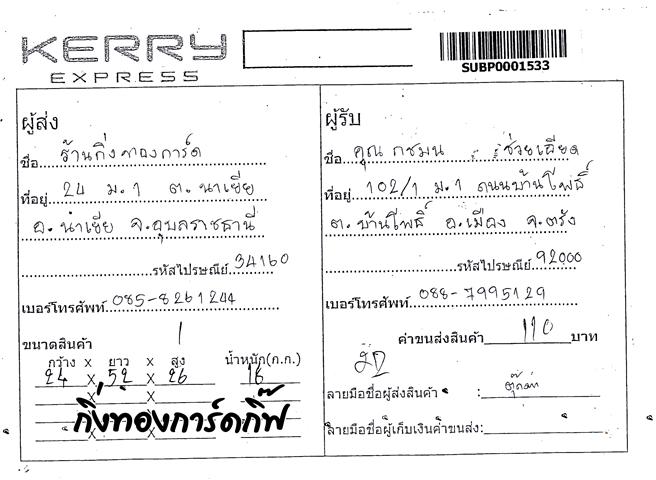 KERRY
EXPRESS
SUBP0001533
ผู้ส่ง
ชื่อ ร้านกิ่งทองการ์ด
ที่อยู่ 24 ม.1 ต.นาเยีย
อ.นาเยีย จ.อุบลราชธานี
รหัสไปรษณีย์ 34160
เบอร์โทรศัพท์ 085-8261244
ขนาดสินค้า 1
กว้าง x ยาว x สูง น้ำหนัก(ก.ก.)
24 X 52 X 26 16
X X
X X
X X
กิ่งทองการ์ดกิ๊ฟ
ผู้รับ
ชื่อ คุณ กชมน ช่วยเฉียด
ที่อยู่ 102/1 ม.1 ถนนบ้านโพธิ์
ต.บ้านโพธิ์ อ.เมือง จ.ตรัง
รหัสไปรษณีย์ 92000
เบอร์โทรศัพท์ 088-7995129
ค่าขนส่งสินค้า 110 บาท
ลายมือชื่อผู้ส่งสินค้า :
ลายมือชื่อผู้เก็บเงินค่าขนส่ง: